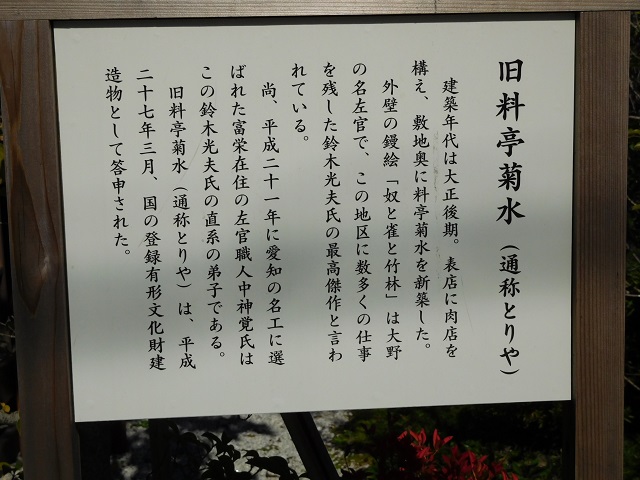 旧料亭菊水（通称とりや）
建築年代は大正後期。表店に肉店を
構え、敷地奥に料亭菊水を新築した。
外壁の鏝絵「奴と雀と竹林」は大野
の名左官で、この地区に数多くの仕事
を残した鈴木光夫氏の最高傑作と言わ
れている。
尚、平成二十一年に愛知の名工に選
ばれた富栄在住の左官職人中神覚氏は
この鈴木光夫氏の直系の弟子である。
旧料亭菊水（通称とりや）は、平成
二十七年三月、国の登録有形文化財建
造物として答申された。